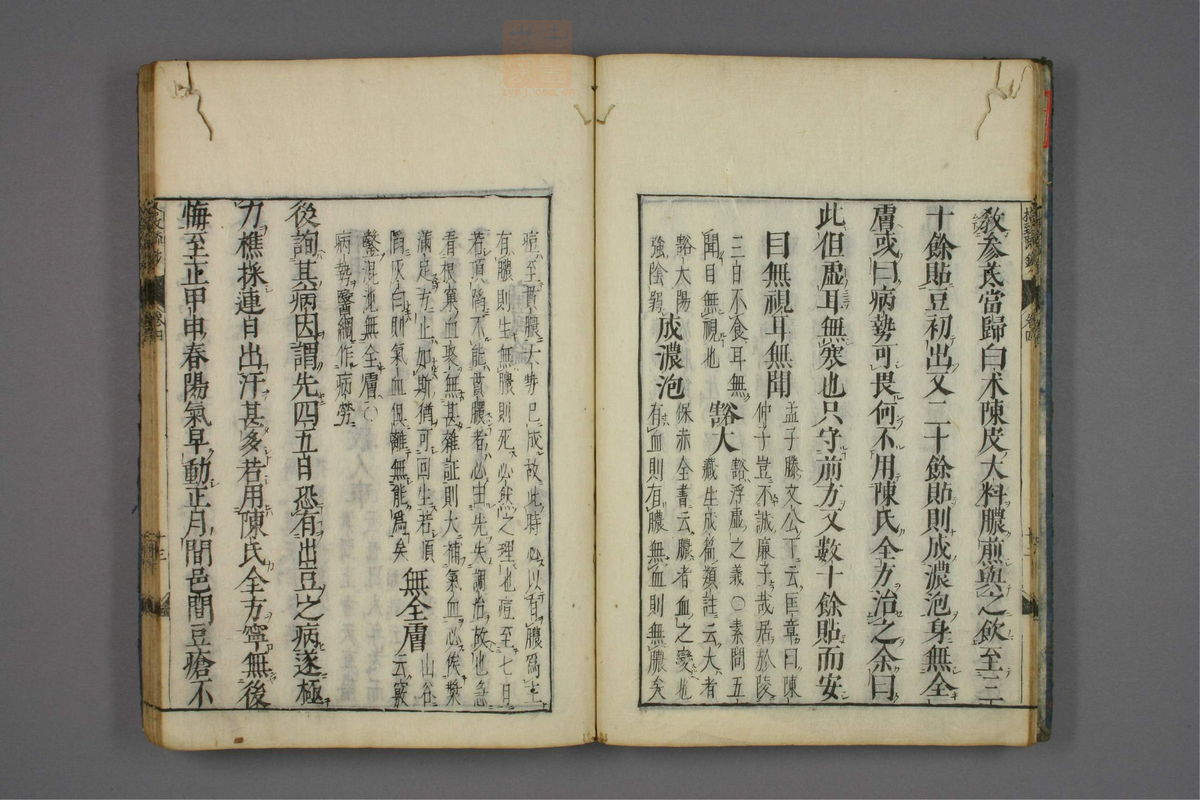 教参芪當歸白术陳皮大料膿煎與之飲至三
十餘貼豆初出又二十餘貼則成濃泡身無全
膚或曰病勢可畏何不用陳氏全方治之余曰
此但虛耳無寒也只守前方又數十餘貼而安
目無視耳無聞 孟子滕文公下云匡章曰陳
仲子豈不誠廉士哉居於陵
三日不食耳無
聞目無視也 豁大 豁浮虛之義〇素問五
藏生成篇類註云大者
豁大陽
強陰弱 成濃泡 保赤全書云膿者血之變也
有血則有膿無血則無膿矣
痘至貫膿大勢已成故此時必以有膿爲主
有膿則生無膿則死必然之理也痘至七日
若頂陷不能貫膿者必由先失調治故也急
看根窠血聚無甚雜証則大補氣血必俟漿
滿足方止如斯猶可回生若頂
陷灰白則氣血俱離無能爲矣 無全膚 山谷
云竅
鑿混沌無全膚〇
病勢醫綱作病勞
後詢其病因謂先四五日恐有出豆之病遂極
力樵採連日出汗甚多若用陳氏全方寧無後
悔至正甲申春陽氣早動正月間邑間豆瘡不
卷四
十三